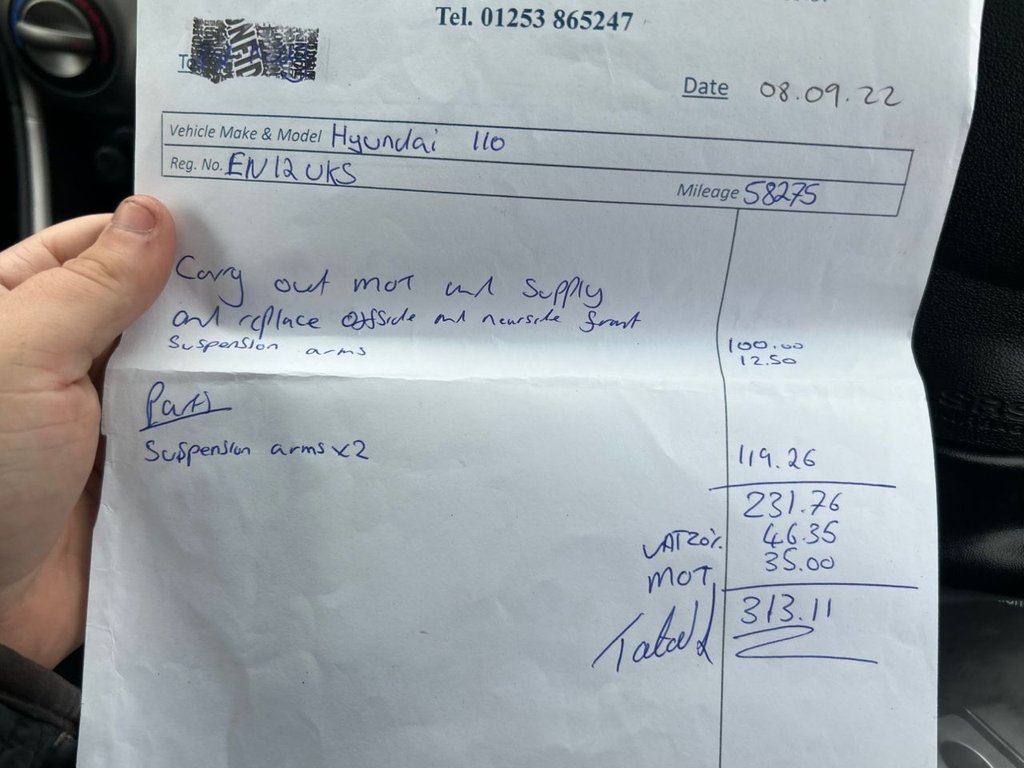 Tel. 01253 865247
To
Date 08.09.22
Vehicle Make & Model Hyundai i10
Reg. No. EN12 UKS Mileage 58275
Carry out MOT and Supply
and replace offside and nearside front
Suspension arms 100.00
12.50
Parts
Suspension arms x2 119.26
231.76
VAT20% 46.35
MOT 35.00
Total 313.11